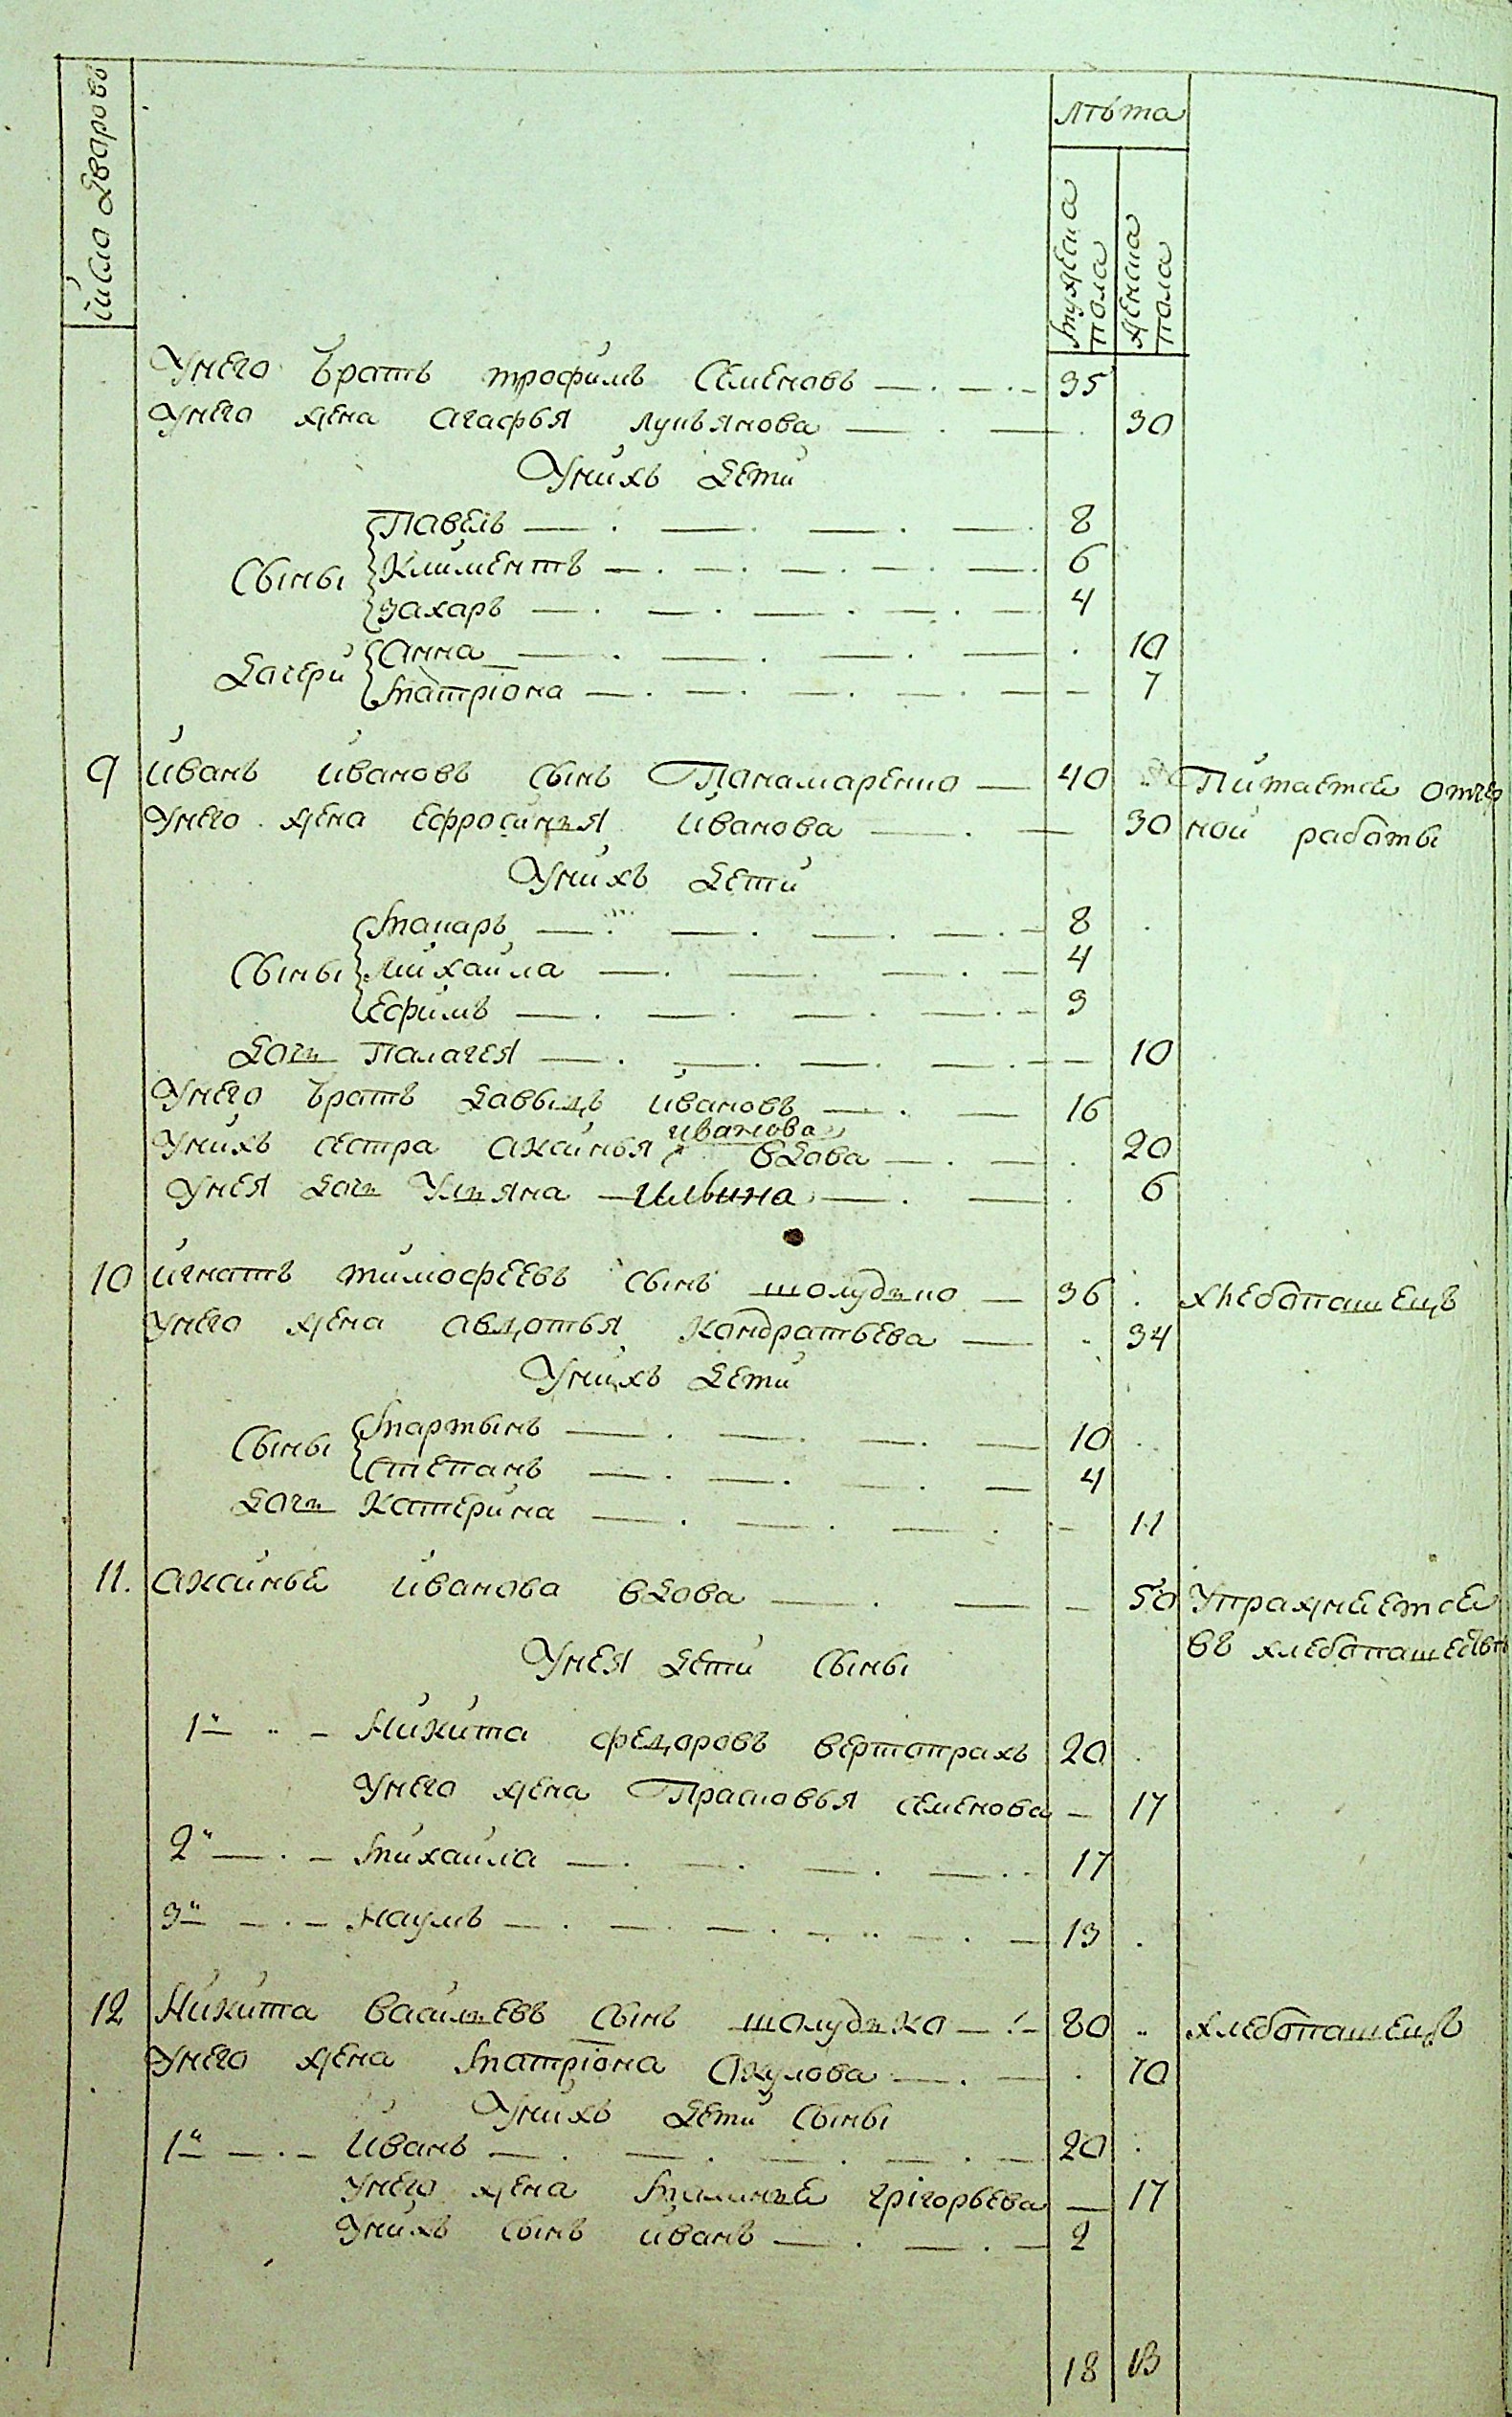 число дворовъ
лѣта
мужеска пола
женска пола
Унего братъ трофимъ Семеновъ 35
Унего жена агафья лукьянова 30
Унихъ дети
Сыны Павелъ 8
Климентъ 6
Захаръ 4
дочери Анна 10
Матріона 7
9 иванъ ивановъ сынъ Панамаренко 40 Питается отчер
Унего жена ефросинья иванова 30 ной работы
Унихъ дети
Сыны Макаръ 8
Михайла 4
Ефимъ 3
дочь Палагея 10
Унего братъ давыдъ ивановъ 16
Унихъ сестра аксинья иванова вдова 20
Унея дочь Ульяна ильина 6
10 игнатъ тимофеевъ сынъ шолудько 36 хлебопашецъ
Унего жена авдотья кондратьева 34
Унихъ дети
Сыны Мартынъ 10
Степанъ 4
дочь Катерина 11
11. аксинья иванова вдова 50 Упражняется
въ хлебопашестве
Унея дети Сыны
1й Никита федоровъ вертопрахъ 20
Унего жена Прасковья семенова 17
2й Михайла 17
3й Наумъ 13
12 Никита васильевъ сынъ шолудько 80 хлебопашецъ
Унего жена Матріона Акулова 70
Унихъ дети Сыны
1й Иванъ 20
Унего жена Маланья грігорьева 17
Унихъ сынъ иванъ 2
18 13